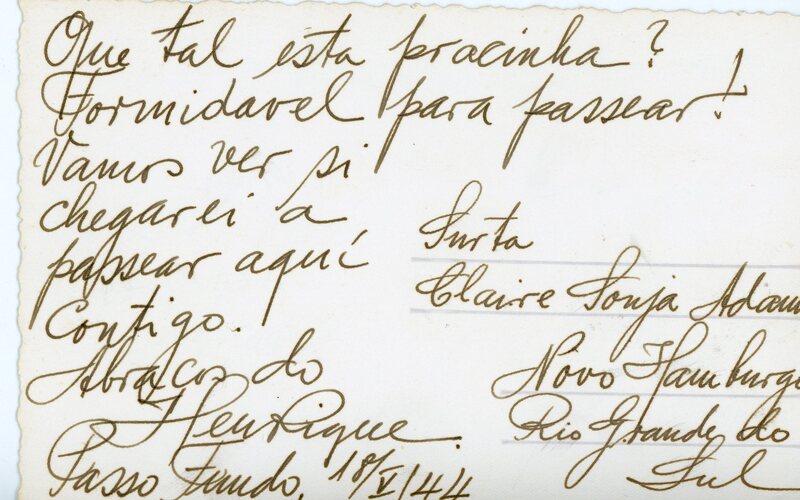 Que tal esta pracinha?
Formidavel para passear!
Vamos ver si
chegarei a
passear aquí
Contigo.
Abraços do
Henrique.
Passo Fundo, 18/V/44
Snrta
Claire Sonja Adam
Novo Hamburgo
Rio Grande do
Sul